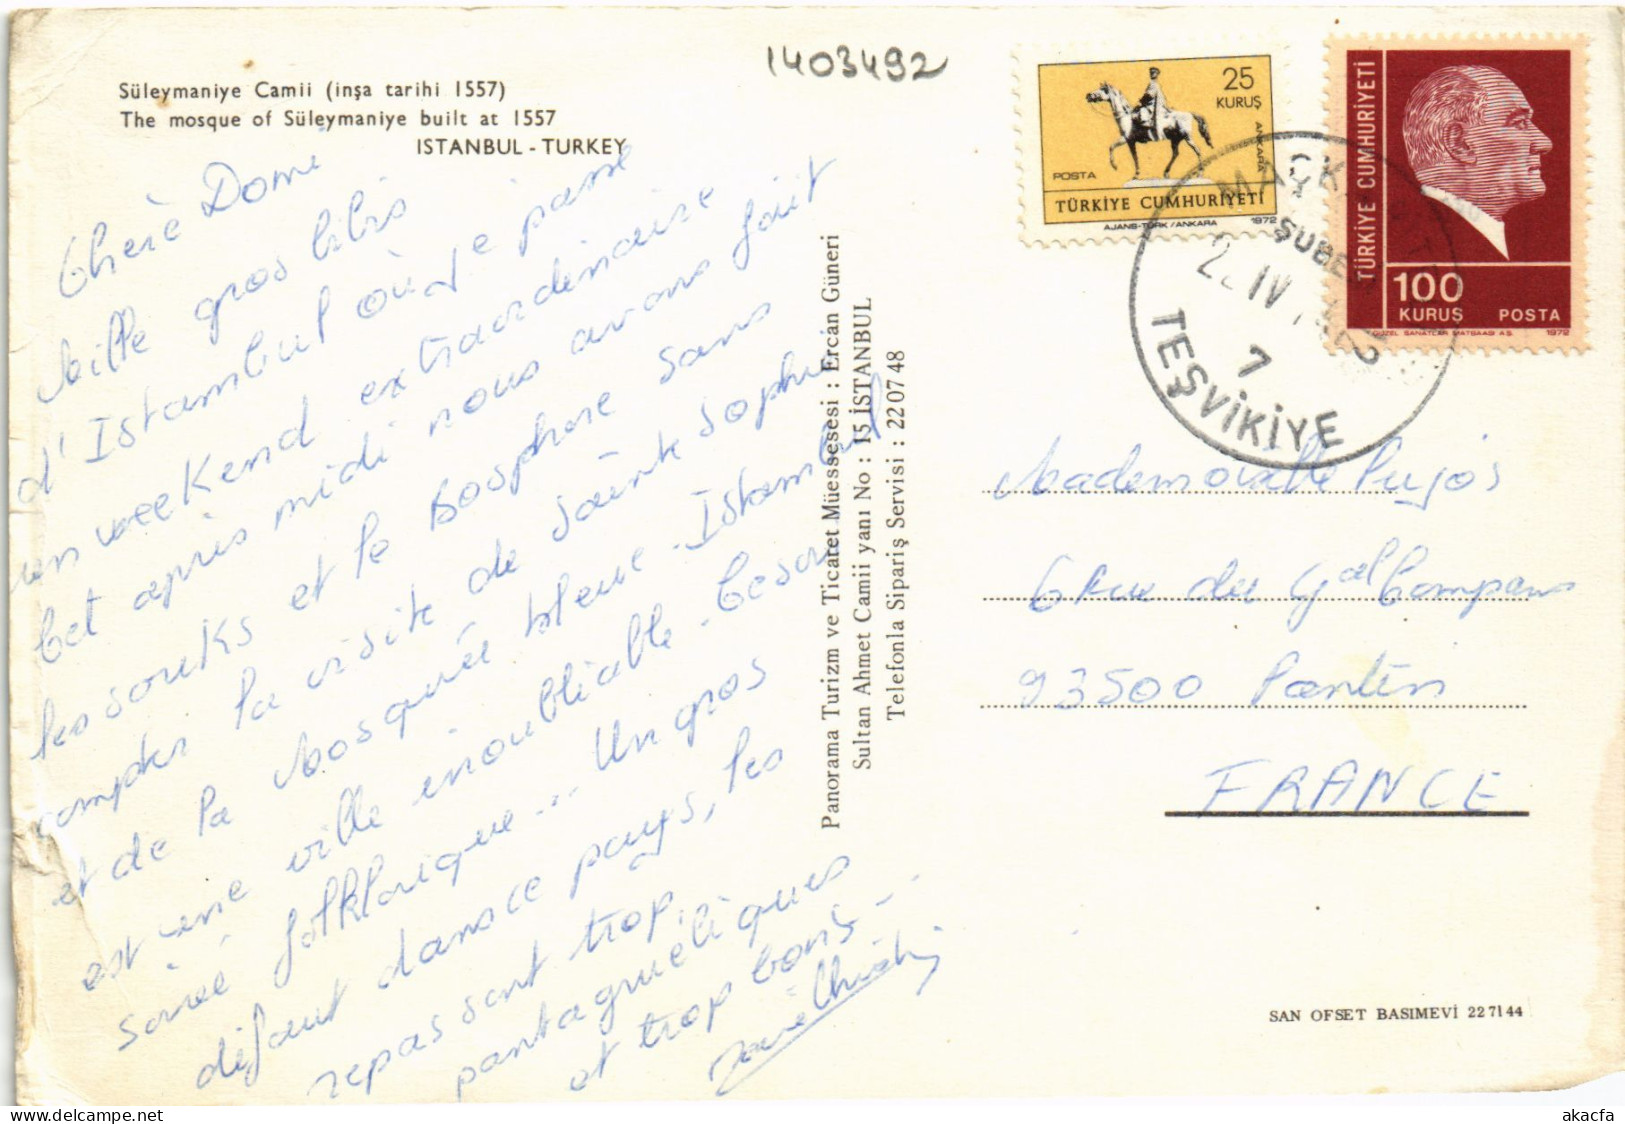 Süleymaniye Camii (inşa tarihi 1557)
The mosque of Süleymaniye built at 1557
ISTANBUL - TURKEY
1403492
25
KURUŞ
ANKARA
POSTA
TÜRKİYE CUMHURİYETİ
AJANS-TÜRK/ANKARA
1972
TÜRKİYE CUMHURİYETİ
100
KURUŞ
POSTA
GÜZEL SANATLAR MATBAASI A.Ş.
1972
MAÇKA
ŞUBE
IV
7
TEŞVİKİYE
Chère Domi
Mille gros bibis
d'Istambul où je passe
un weekend extraordinaire
Cet après midi nous avons fait
les souks et le Bosphore sans
compter la visite de Sainte Sophie
et de la Mosquée bleue. Istambul
est une ville inoubliable. Ce soir
soirée folklorique... Un gros
défaut dans ce pays, les
repas sont trop
pantagruéliques
et trop bons.
Panorama Turizm ve Ticaret Müessesesi : Ercan Güneri
Sultan Ahmet Camii yanı No : 15 İSTANBUL
Telefonla Sipariş Servisi : 220748
Mademoiselle Pujos
6 Rue du Gal Compans
93500 Pantin
FRANCE
SAN OFSET BASIMEVİ 227144
akacfa